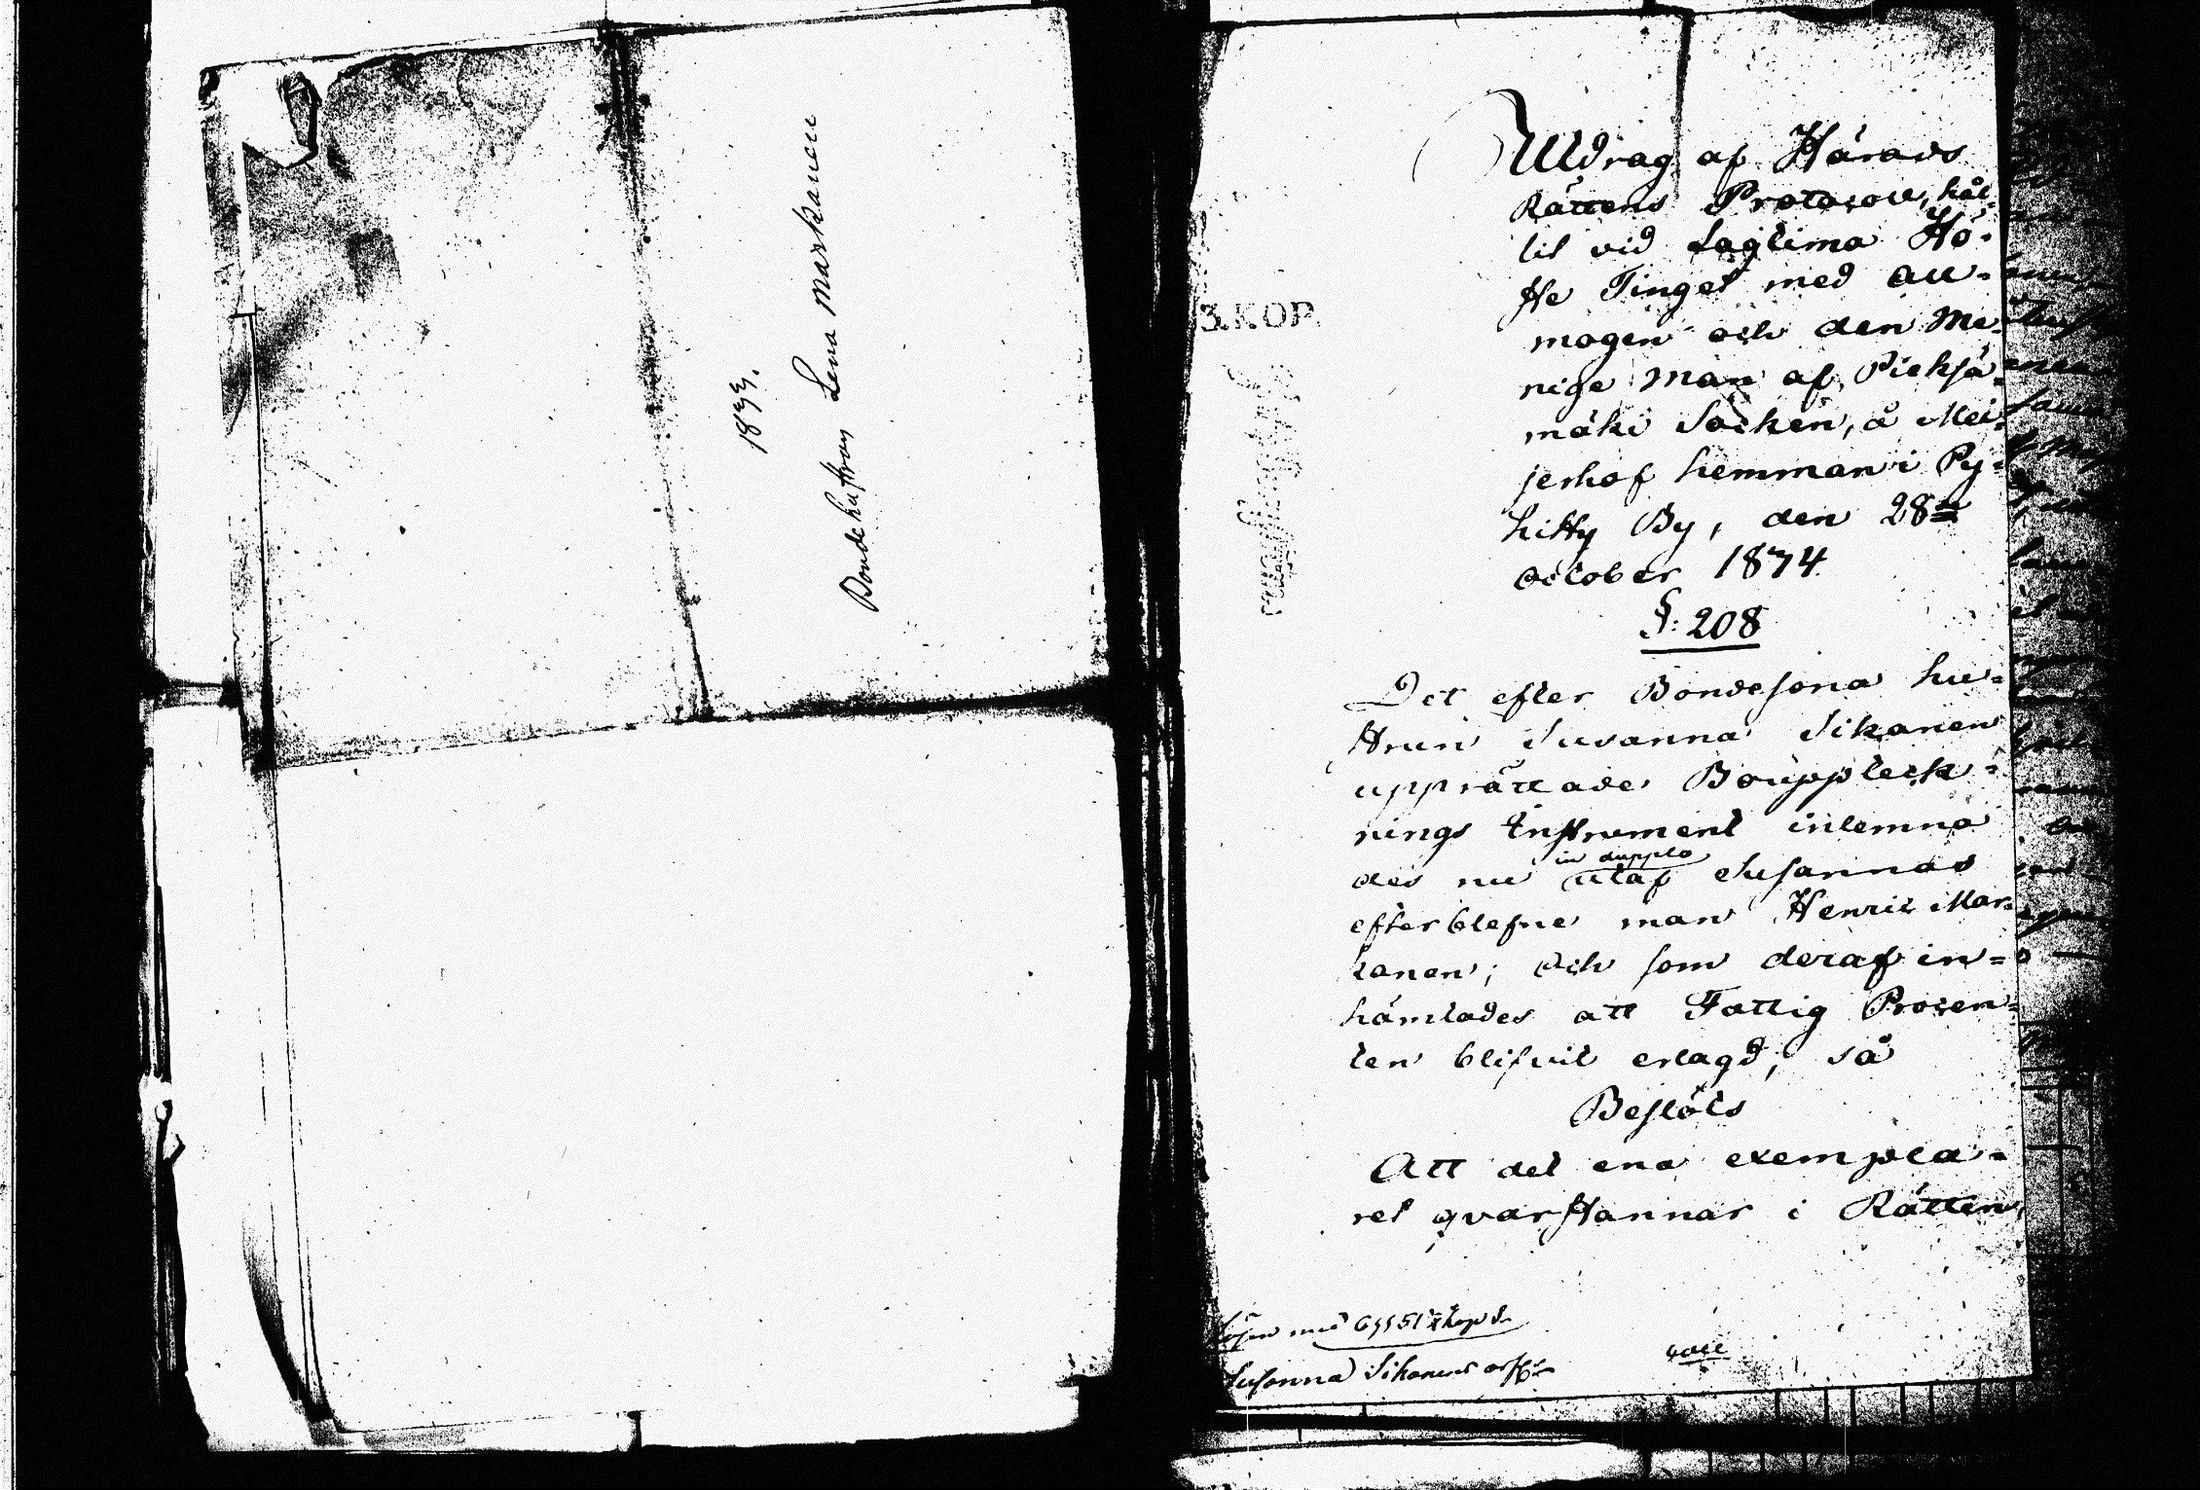 1833.
Bondehustrun Lena Markanen
Utdrag af Härads
Rättens Protocoll, hål-
lit vid Lagtima Hö-
ste Tinget med All-
mogen och den Me-
nige man af Pieksä-
mäki Socken, å Mei-
jerhof hemman i Py-
hitty By, den 28de
October 1874
§: 208
Det efter Bondesona hu-
strun Susanna Sikanen
upprättade Bouppteck-
nings Instrument inlemna
des nu in dupplo utaf Susannas
efterblefne man Henric Mar-
kanen; och som deraf in-
hämtades att Fattig Procen-
ten blifvit erlagd, så
Beslöts
Att det ena exempla-
ret qvarstannar i Rätten,
Lösen med
Susanna Sikanens
3. KOP.